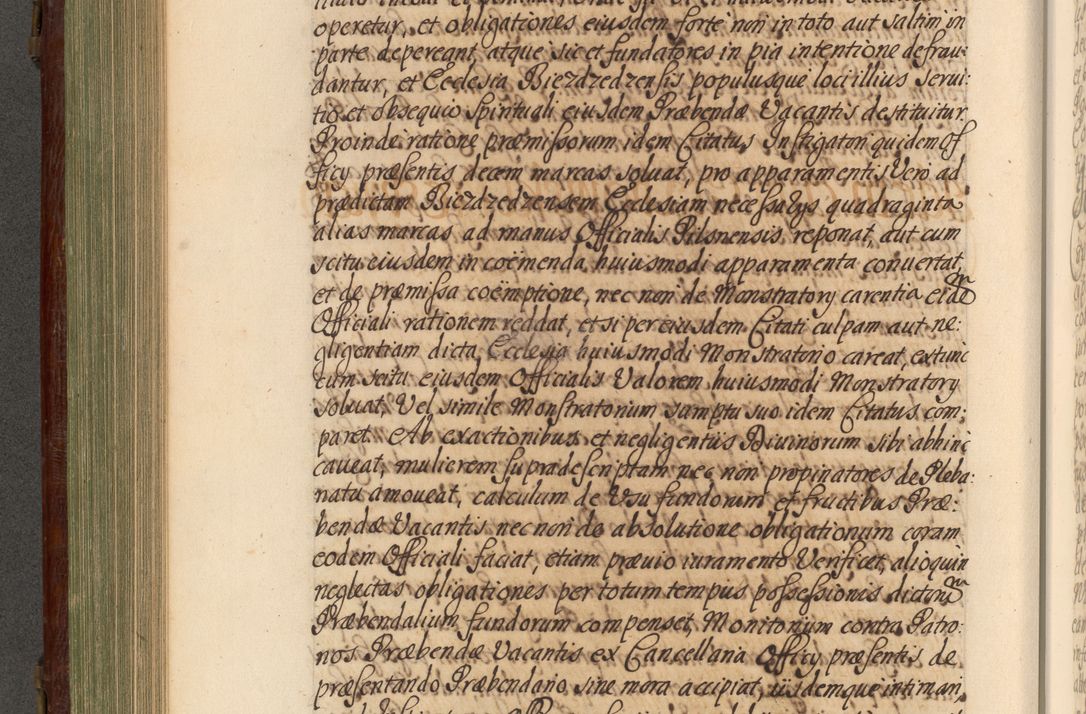 operetur, et obligationes eiusdem forte non in toto aut saltim in
parte depereant, atque sic et fundatores in pia intentione defrau:
dantur, et Ecclesia Biezdzedzensis populusque loci illius servi:
tio et obsequio Spirituali eiusdem Præbendæ Vacantis destituitur.
Proinde ratione præmissorum idem Citatus Instigatori quidem Of
ficy præsentis decem marcas soluat, pro apparamentis Vero ad
prædictam Biezdzedzensem Ecclesiam necessarys quadraginta
alias marcas ad manus Officialis Pilsnensis reponat, aut cum
scitu eiusdem in coëmenda huiusmodi apparamenta conuertat,
et de præmissa coëmptione, nec non de Monstratory carentia eidem
Officiali rationem reddat, et si per eiusdem Citati culpam aut ne:
gligentiam dicta Ecclesia huiusmodi Monstratorio careat, extunc
cum scitu eiusdem Officialis Valorem huiusmodi Monstratory
soluat, Vel simile Monstratorium sumptu suo idem Citatus com:
paret. Ab exactionibus et negligentiis Diuinorum sibi abhinc
caveat, mulierem supradescriptam nec non propinatores de Pleba:
natu amoueat, calculum de Usu fundorum et fructibus Præ:
bendæ Vacantis nec non de absolutione obligationum coram
eodem Officiali faciat, etiam prævio iuramento Verificet, alioquin
neglectas obligationes per totum tempus possessionis dictorum
Præbendalium fundorum compenset, Monitorium contra Patro:
nos Præbendæ Vacantis ex Cancellaria Officy præsentis de
præsentando Præbendario sine mora accipiat, iisdemque intimari